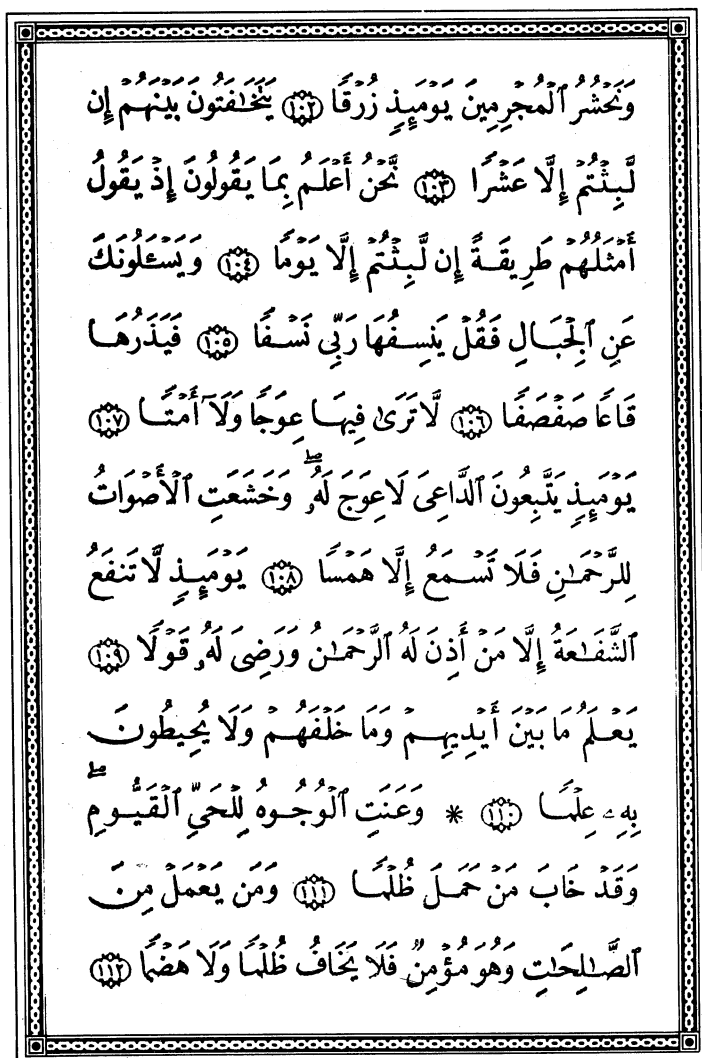 وَنَحْشُرُ ٱلْمُجْرِمِينَ يَوْمَئِذٍ زُرْقًا ١٠٢ يَتَخَـٰفَتُونَ بَيْنَهُمْ إِن
لَّبِثْتُمْ إِلَّا عَشْرًا ١٠٣ نَّحْنُ أَعْلَمُ بِمَا يَقُولُونَ إِذْ يَقُولُ
أَمْثَلُهُمْ طَرِيقَةً إِن لَّبِثْتُمْ إِلَّا يَوْمًا ١٠٤ وَيَسْـَٔلُونَكَ
عَنِ ٱلْجِبَالِ فَقُلْ يَنسِفُهَا رَبِّى نَسْفًا ١٠٥ فَيَذَرُهَا
قَاعًا صَفْصَفًا ١٠٦ لَّا تَرَىٰ فِيهَا عِوَجًا وَلَآ أَمْتًا ١٠٧
يَوْمَئِذٍ يَتَّبِعُونَ ٱلدَّاعِىَ لَا عِوَجَ لَهُۥ ۖ وَخَشَعَتِ ٱلْأَصْوَاتُ
لِلرَّحْمَـٰنِ فَلَا تَسْمَعُ إِلَّا هَمْسًا ١٠٨ يَوْمَئِذٍ لَّا تَنفَعُ
ٱلشَّفَـٰعَةُ إِلَّا مَنْ أَذِنَ لَهُ ٱلرَّحْمَـٰنُ وَرَضِىَ لَهُۥ قَوْلًا ١٠٩
يَعْلَمُ مَا بَيْنَ أَيْدِيهِمْ وَمَا خَلْفَهُمْ وَلَا يُحِيطُونَ
بِهِۦ عِلْمًا ١١٠ * وَعَنَتِ ٱلْوُجُوهُ لِلْحَىِّ ٱلْقَيُّومِ ۖ
وَقَدْ خَابَ مَنْ حَمَلَ ظُلْمًا ١١١ وَمَن يَعْمَلْ مِنَ
ٱلصَّـٰلِحَـٰتِ وَهُوَ مُؤْمِنٌ فَلَا يَخَافُ ظُلْمًا وَلَا هَضْمًا ١١٢